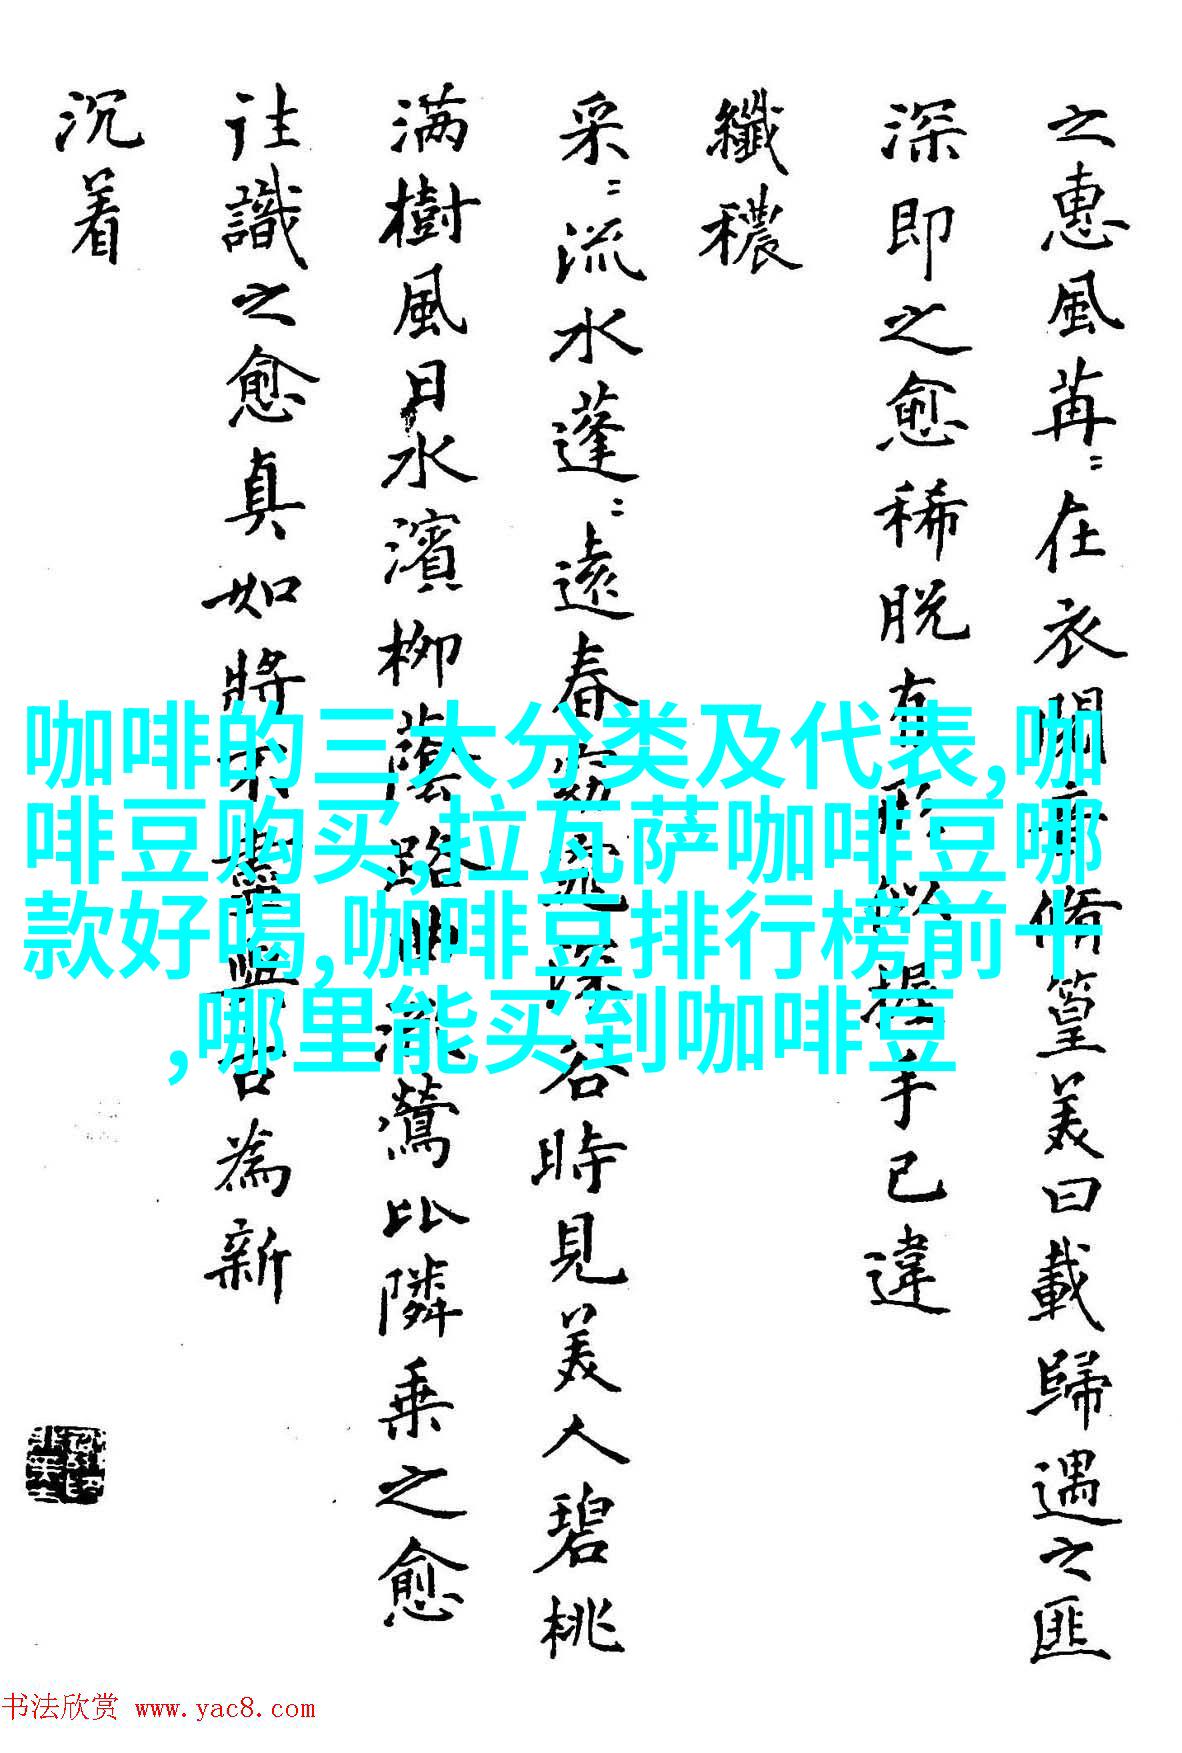 之惠風苒〻在衣閲音脩篁美曰載歸遇之匪
深即之愈稀脱有形似握手已違
纖穠
采〻流水蓬〻遠春窈窕深谷時見美人碧桃
满樹風日水濱柳蔭路曲流鶯比隣乗之愈
往識之愈真如將不盡與古為新
沉着
咖啡的三大分类及代表,咖
啡豆购买,拉瓦萨咖啡豆哪
款好喝,咖啡豆排行榜前十
,哪里能买到咖啡豆
书法欣赏 www.yac8.com